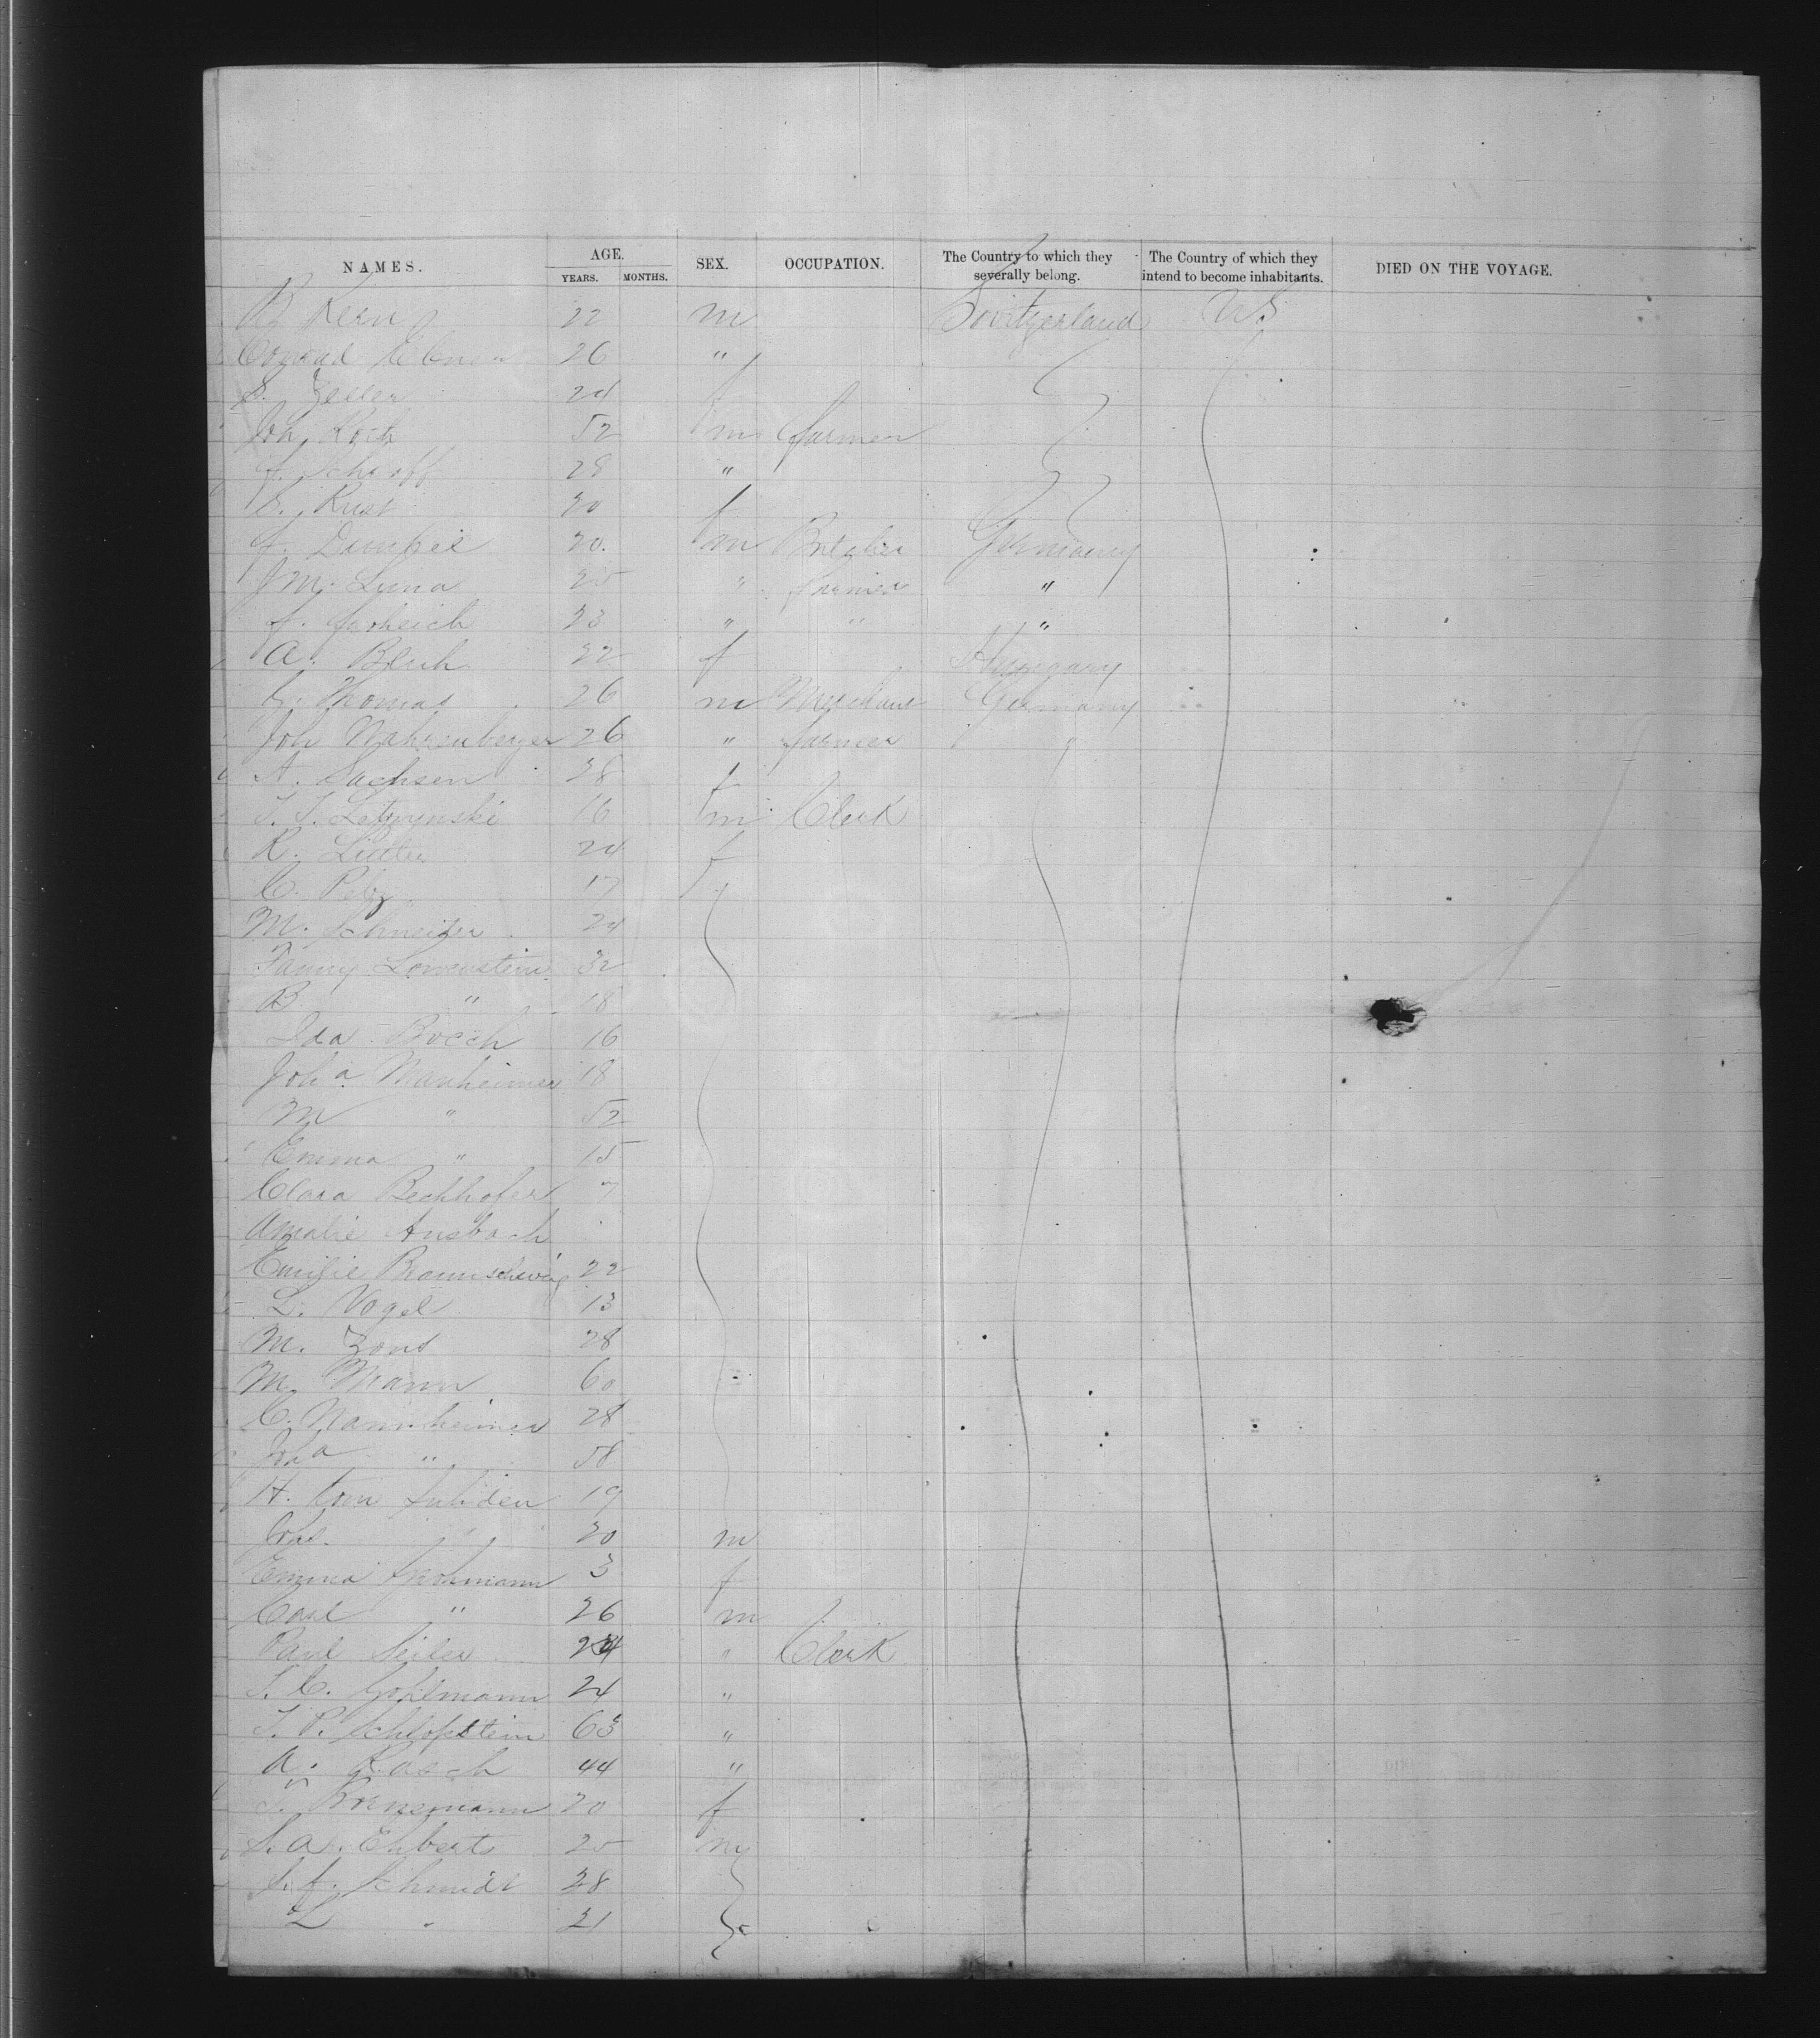 NAMES. AGE. YEARS. MONTHS. SEX. OCCUPATION. The Country to which they severally belong. The Country of which they intend to become inhabitants. DIED ON THE VOYAGE.
Kern 22 m Switzerland US
Conrad 26 "
S. Zeller 24 f
Joh. Koch 52 m farmer
f. Schroff 28 "
S. Rust 20 f
f. Dimpel 20. m Butcher Germany
J M. Luna 25 " farmer "
f. 23 " " "
A. Bluh 22 f Hungary
G. Thomas 26 m Merchant Germany
Joh Wahrenberger 26 " farmer "
A. Sachsen 28 f
16 m Clerk
R. 24 f
C. 17 f
M. Schneider 24
Fanny Lowenstein 32
B " 18
Ida Bocch 16
Joha. Manheimer 18
M " 52
Emma " 15
Clara Bechhofer 7
Amalie Ansbach
Emilie Braunschweig 22
L. Vogel 13
M. Zons 28
M. Mann 60
C. Mannheimer 28
Joha " 58
H. tom 19
" 20 m
Emma 3 f
Carl " 26 m
Paul Seiler 24 " Clerk
J. C. Gohlmann 24 "
J. P. Schlopstein 63 "
A. Rasch 44 "
T. Bornemann 20 f
S. A. Ehberts 25 m
S. f. Schmidt 28
L " 21